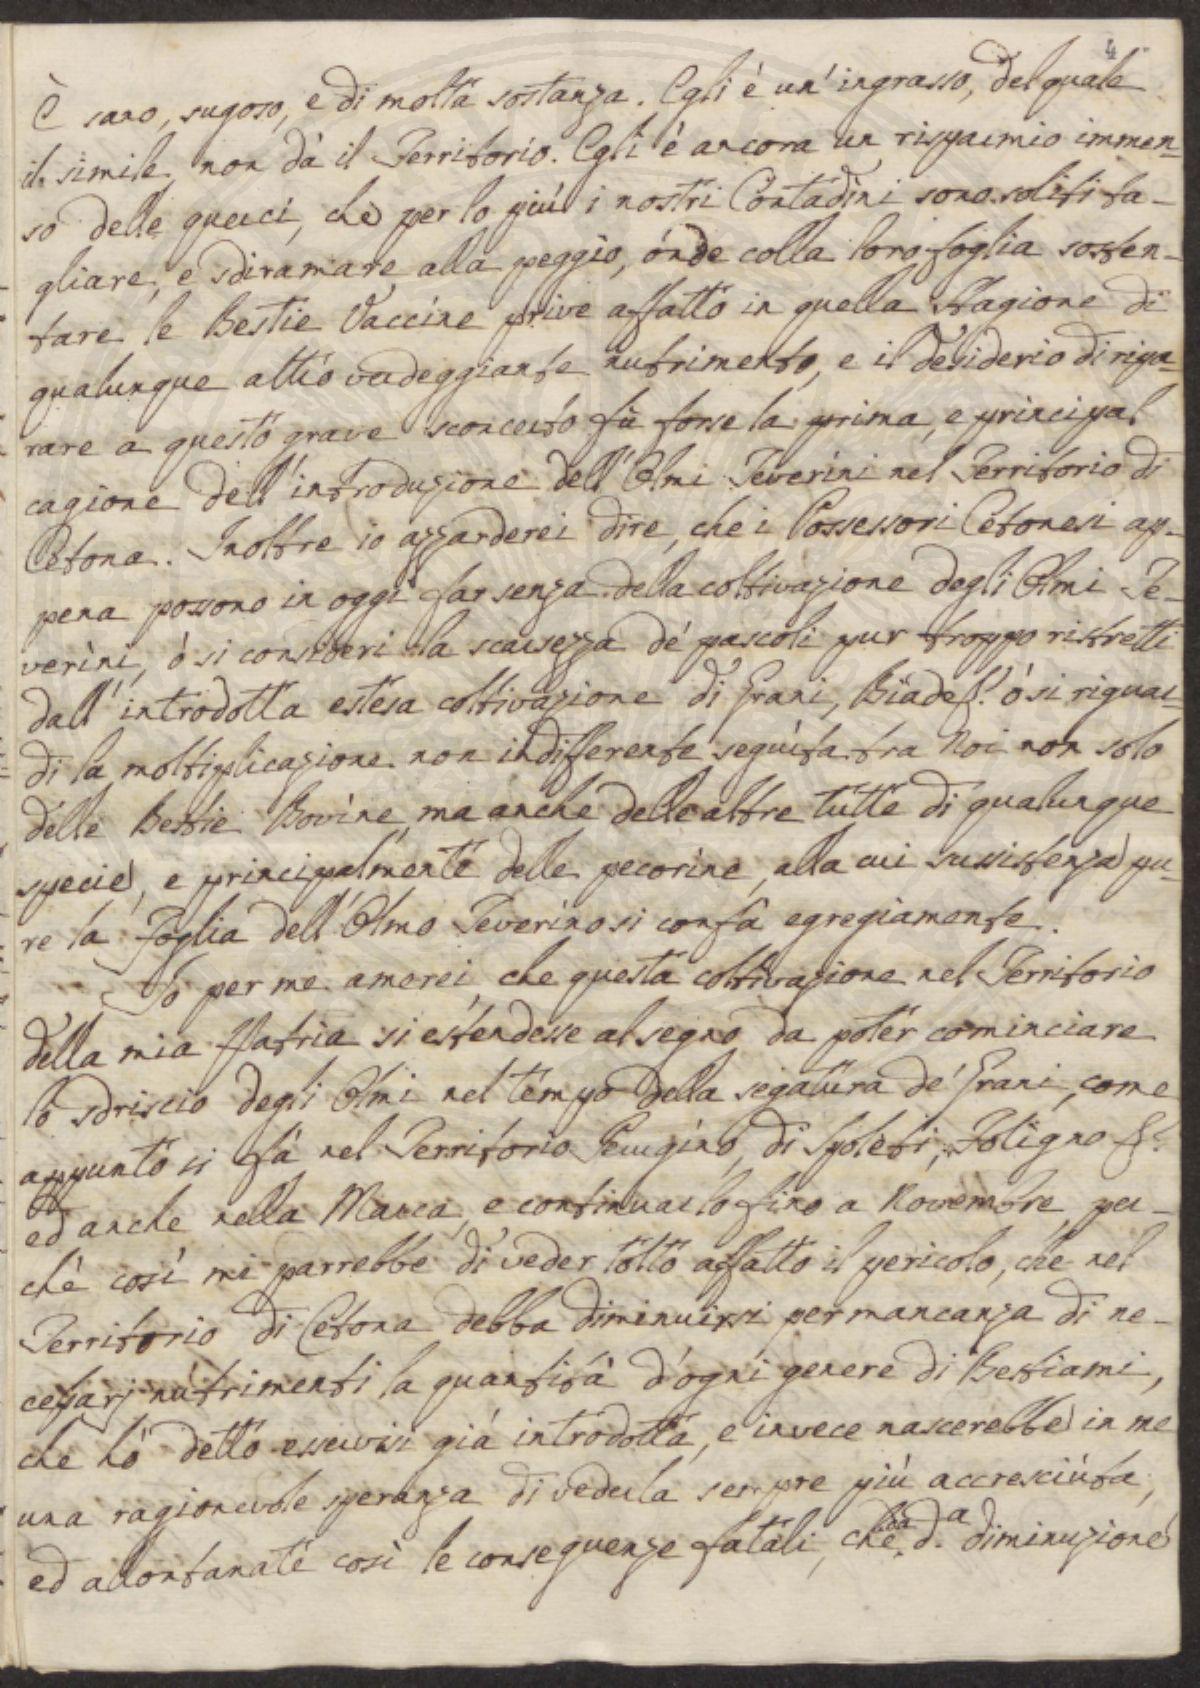 4
È sano, sugoso, e di molta sostanza. Egli è un' ingrasso, del quale
il simile non dà il Territorio. Egli è ancora un risparmio immen=
so delle querci, che per lo più i nostri Contadini sono soliti ta-
gliare, e sdiramare alla peggio, onde colla loro foglia sosten-
tare le Bestie Vaccine prive affatto in quella Stagione di
qualunque altro verdeggiante nutrimento, e il desiderio di ripa=
rare a questo grave sconcerto fù forse la prima, e principal
cagione dell' introduzione dell' Olmi Teverini nel Territorio di
Cetona. Inoltre io azzarderei dire, che i Possessori Cetonesi ap-
pena possono in oggi far senza della coltivazione degli Olmi Te-
verini, ò si consideri la scarsezza de' pascoli pur troppo ristretti
dall' introdotta estesa coltivazione di Grani, Biade &c. ò si riguar=
di la moltiplicazione non indifferente seguita tra Noi non solo
delle Bestie Bovine, ma anche delle altre tutte di qualunque
specie, e principalmente delle pecorine, alla cui sussistenza pu=
re la Foglia dell' Olmo Teverino si confà egregiamente.
Io per me amerei, che questa coltivazione nel Territorio
della mia Patria si estendesse al segno da poter cominciare
lo sdriscio degli Olmi nel tempo della segatura de' Grani, come
appunto si fà nel Territorio Perugino, di Spoleti, Foligno &c.
ed anche nella Marca, e continuarlo fino a Novembre, per-
chè così mi parrebbe di veder tolto affatto il pericolo, che nel
Territorio di Cetona debba diminuirsi per mancanza di ne-
cessarj nutrimenti la quantità d'ogni genere di Bestiami,
che hò detto essersi già introdotta, e invece nascerebbe in me
una ragionevole speranza di vederla sempre più accresciuta,
ed allontanate così le conseguenze fatali, che d.a diminuzione